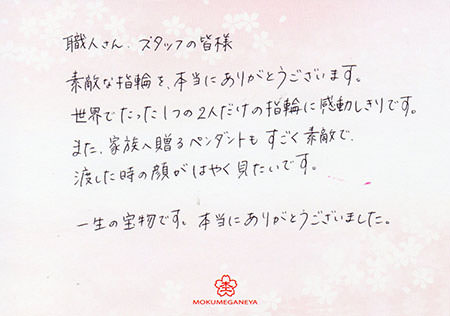 職人さん、スタッフの皆様
素敵な指輪を、本当にありがとうございます。
世界でたった1つの2人だけの指輪に感動しきりです。
また、家族へ贈るペンダントもすごく素敵で、
渡した時の顔がはやく見たいです。
一生の宝物です。本当にありがとうございました。
MOKUMEGANEYA